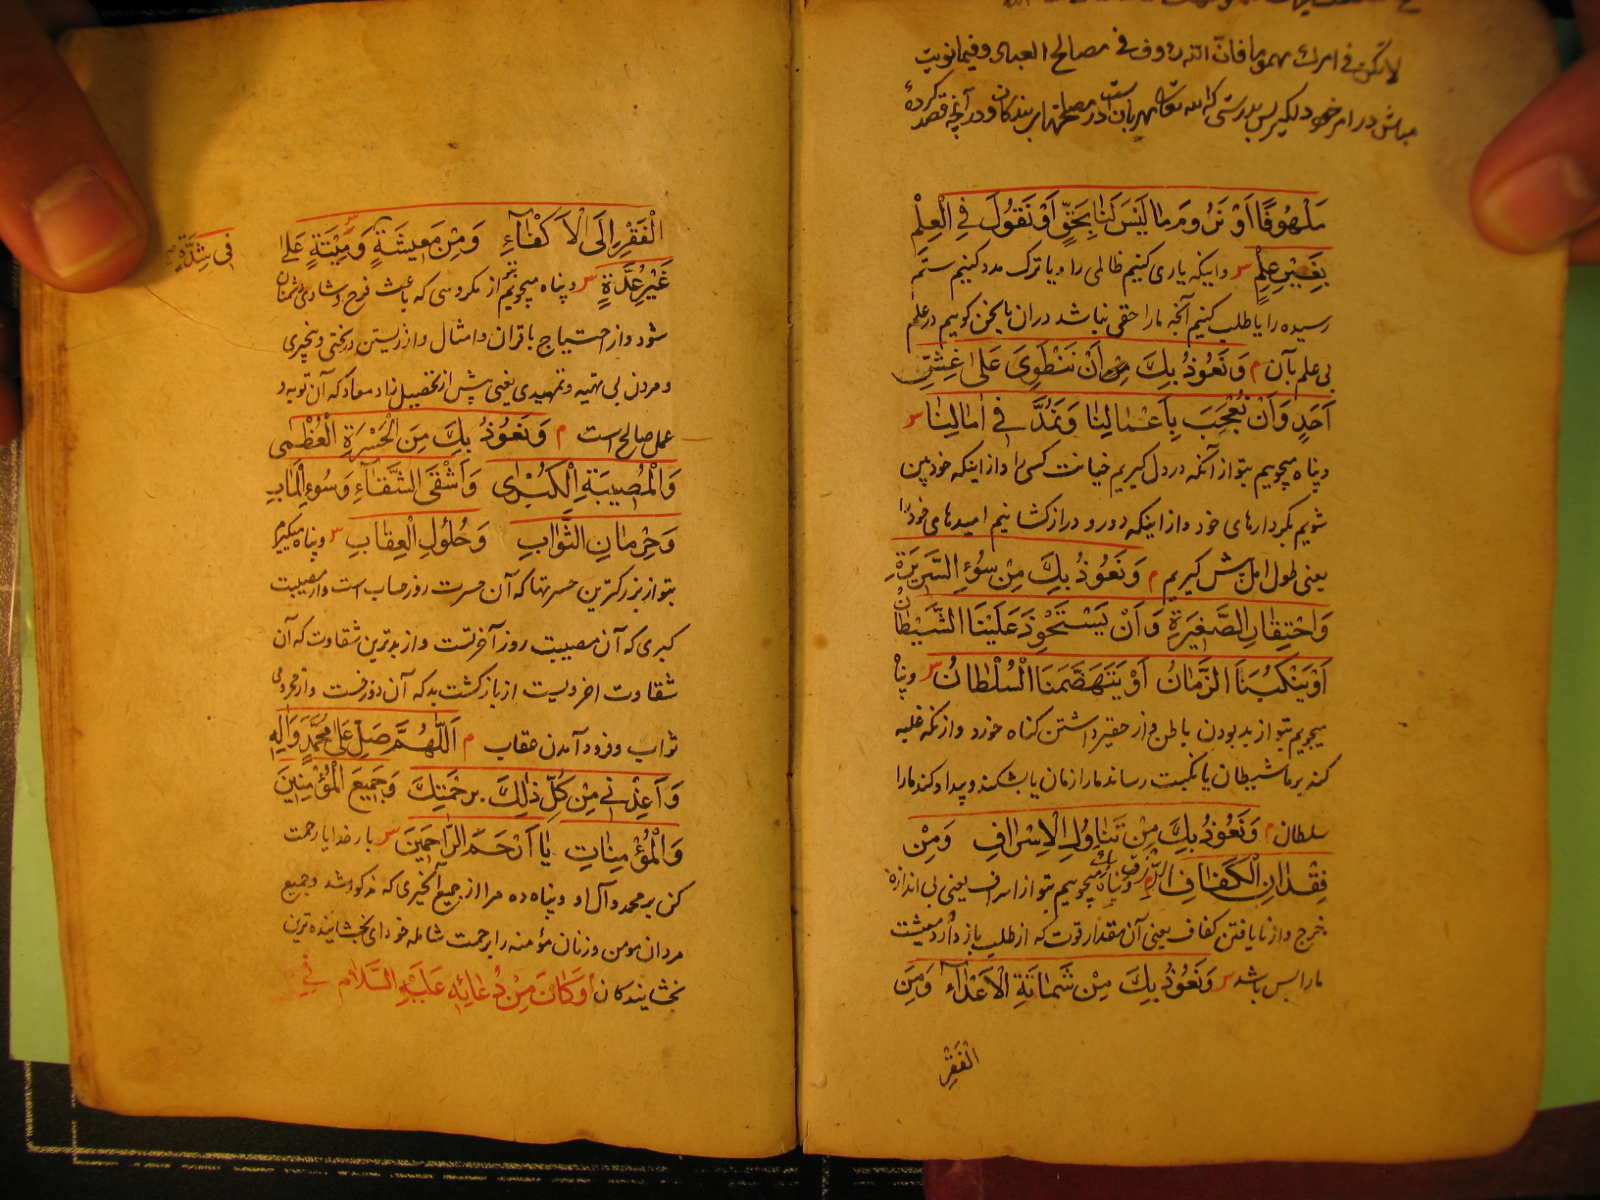 لا تكن في امرك مهموما فان الله رؤوف في مصالح العباد وفيما نويت
مباش در امر خود دلگير پس بدرستى كه الله تعالى مهربان است در مصلحتهاى بندگان و در آنچه قصد كردهٔ
مَلْهُوفًا اَوْ نَرُومَ مَا لَيْسَ لَنَا بِحَقٍّ اَوْ نَقُولَ فِي الْعِلْمِ
بِغَيْرِ عِلْمٍ س و اينكه يارى كنيم ظالمى را و يا ترك مدد كنيم ستم
رسيده را يا طلب كنيم آنچه ما را حقى نباشد در آن يا سخن گوييم در علم
بى علم بآن م وَ نَعُوذُ بِكَ مِنْ اَنْ نَنْطَوِىَ عَلىٰ غِشِّ
اَحَدٍ وَ اَنْ نُعْجَبَ بِاَعْمَالِنَا وَ نَمُدَّ فِي اٰمَالِنَا س
و پناه ميجوييم بتو از آنكه در دل گيريم خيانت كسى را و از اينكه خودبين
شويم بكردارهاى خود و از اينكه دور و دراز كشانيم اميدهاى خود را
يعنى طول امل پيش گيريم م وَ نَعُوذُ بِكَ مِنْ سُوءِ السَّرِيرَةِ
وَ احْتِقَارِ الصَّغِيرَةِ وَ اَنْ يَسْتَحْوِذَ عَلَيْنَا الشَّيْطَانُ
اَوْ يَنْكُبَنَا الزَّمَانُ اَوْ يَتَهَضَّمَنَا السُّلْطَانُ س و پناه
ميجوييم بتو از بد بودن باطن و از حقير داشتن گناه خورد و از آنكه غلبه
كند بر ما شيطان يا نكبت رساند ما را زمان يا بشكند و بيداد كند ما را
سلطان م وَ نَعُوذُ بِكَ مِنْ تَنَاوُلِ الْاِسْرَافِ وَ مِنْ
فِقْدَانِ الْكَفَافِ و پناه ميجوييم بتو از اسراف يعنى بى اندازه
خرج و از نايافتن كفاف يعنى آن مقدار قوت كه از طلب باز دارد و معيشت
ما را بس باشد س وَ نَعُوذُ بِكَ مِنْ شَمَاتَةِ الْاَعْدَآءِ وَ مِنَ
الْفَقْرِ
الْفَقْرِ اِلَى الْاَكْفَآءِ وَ مِنْ مَعِيشَةٍ فى شِدَّةٍ وَ مِيْتَةٍ عَلىٰ
غَيْرِ عُدَّةٍ س و پناه ميجوييم بتو از مكروهى كه باعث فرح و شادى دشمنان
شود و از احتياج باقران و امثال و از زيستن در سختى و
و مردن بى تهيه و تمهيدى يعنى پيش از تحصيل زاد معاد كه آن توبه و
عمل صالح است م وَ نَعُوذُ بِكَ مِنَ الْحَسْرَةِ الْعُظْمٰى
وَ الْمُصِيبَةِ الْكُبْرٰى وَ اَشْقَى الشَّقَآءِ وَ سُوءِ الْمَاٰبِ
وَ حِرْمَانِ الثَّوَابِ وَ حُلُولِ الْعِقَابِ س و پناه ميگيرم
بتو از بزرگترين حسرتها كه آن حسرت روز حساب است و از مصيبت
كبرى كه آن مصيبت روز آخرتست و از بدترين شقاوت كه آن
شقاوت اخرويست از بازگشت بد كه آن دوزخست و از محرومى
ثواب و فرود آمدن عقاب م اَللّٰهُمَّ صَلِّ عَلىٰ مُحَمَّدٍ وَ اٰلِهِ
وَ اَعِذْنِي مِنْ كُلِّ ذٰلِكَ بِرَحْمَتِكَ وَ جَمِيعَ الْمُؤْمِنِينَ
وَ الْمُؤْمِنَاتِ يَا اَرْحَمَ الرَّاحِمِينَ س بار خدايا رحمت
كن بر محمد و آل او و پناه ده مرا از جميع آنچيزى كه مذكور شد و جميع
مردان مومن و زنان مؤمنه را برحمت شامله خود اى بخشاينده ترين
بخشايندگان وَ كَانَ مِنْ دُعَائِهِ عَلَيْهِ السَّلَامُ فِي